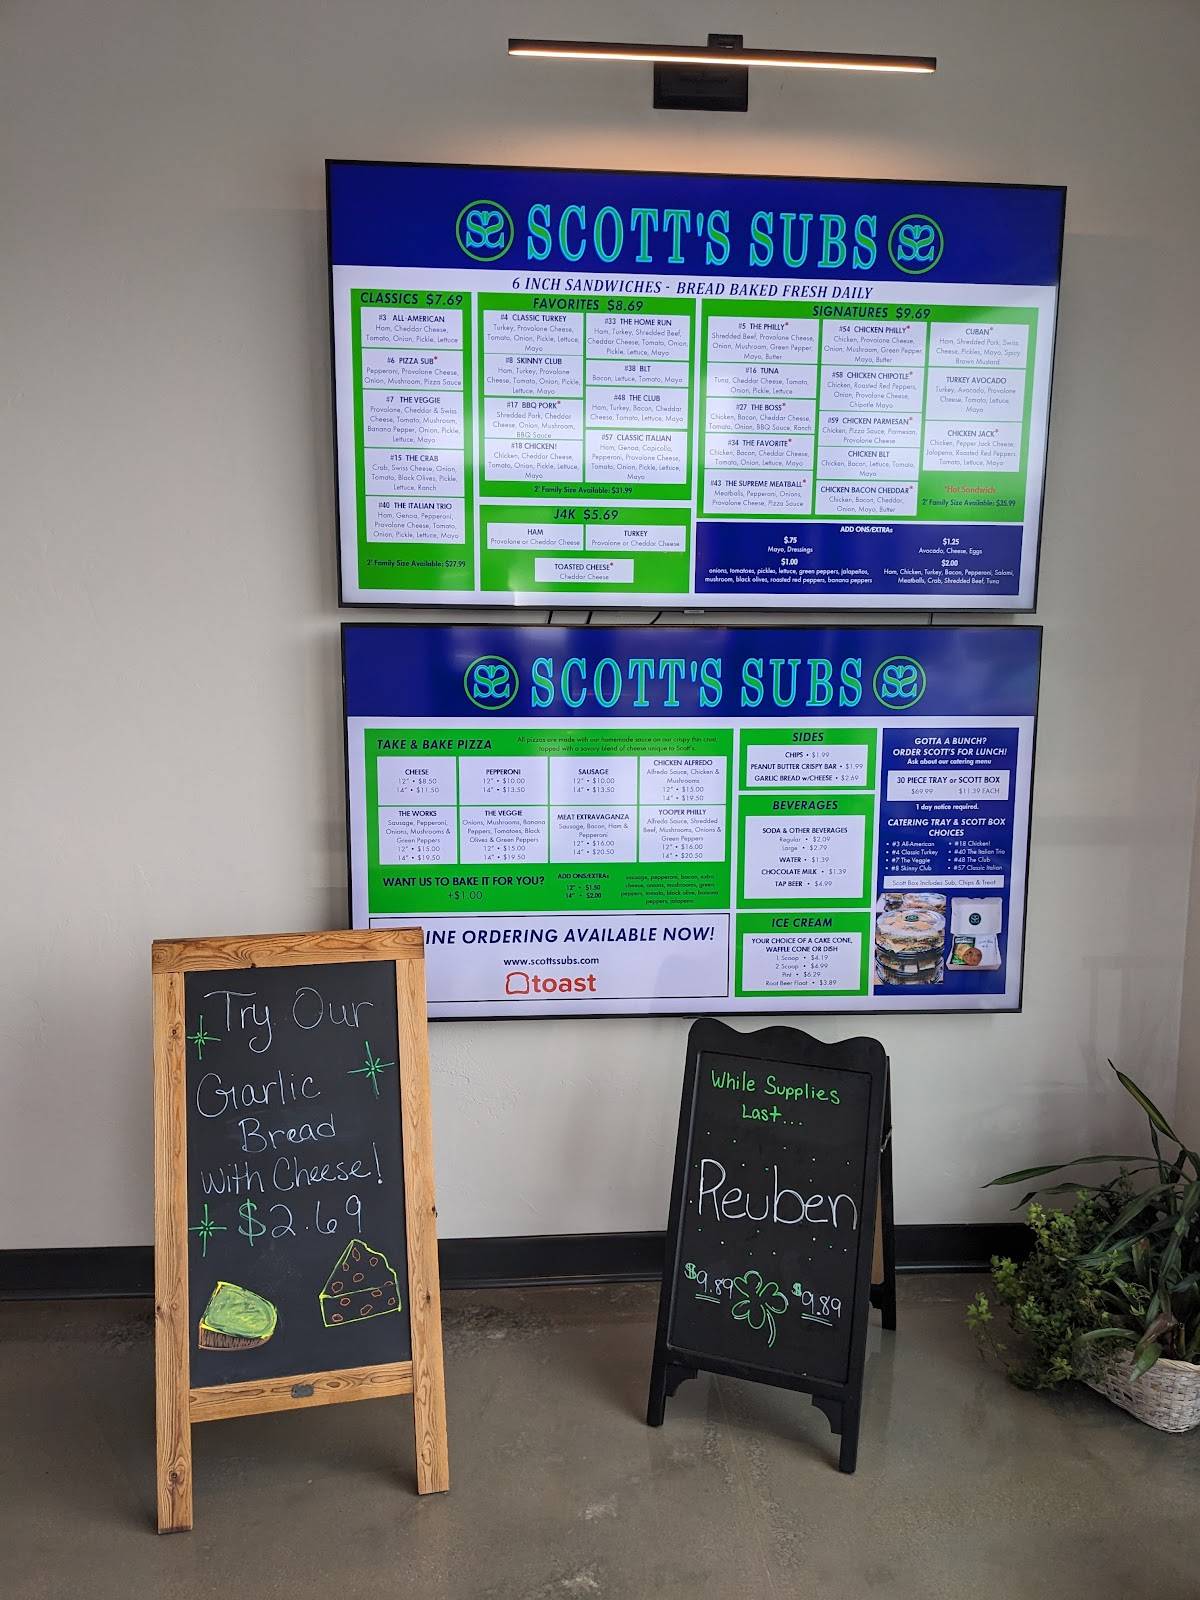 SCOTT'S SUBS
6 INCH SANDWICHES - BREAD BAKED FRESH DAILY
CLASSICS $7.69
#3 ALL-AMERICAN
Ham, Cheddar Cheese,
Tomato, Onion, Pickle, Lettuce
#6 PIZZA SUB*
Pepperoni, Provolone Cheese,
Onion, Mushroom, Pizza Sauce
#7 THE VEGGIE
Provolone, Cheddar & Swiss
Cheese, Tomato, Mushroom,
Banana Pepper, Onion, Pickle,
Lettuce, Mayo
#15 THE CRAB
Crab, Swiss Cheese, Onion,
Tomato, Black Olives, Pickle,
Lettuce, Ranch
#40 THE ITALIAN TRIO
Ham, Genoa, Pepperoni,
Provolone Cheese, Tomato,
Onion, Pickle, Lettuce, Mayo
2' Family Size Available: $27.99
FAVORITES $8.69
#4 CLASSIC TURKEY
Turkey, Provolone Cheese,
Tomato, Onion, Pickle, Lettuce,
Mayo
#8 SKINNY CLUB
Ham, Turkey, Provolone
Cheese, Tomato, Onion, Pickle,
Lettuce, Mayo
#17 BBQ PORK*
Shredded Pork, Cheddar
Cheese, Onion, Mushroom,
BBQ Sauce
#18 CHICKEN!
Chicken, Cheddar Cheese,
Tomato, Onion, Pickle, Lettuce,
Mayo
#33 THE HOME RUN
Ham, Turkey, Shredded Beef,
Cheddar Cheese, Tomato, Onion,
Pickle, Lettuce, Mayo
#38 BLT
Bacon, Lettuce, Tomato, Mayo
#48 THE CLUB
Ham, Turkey, Bacon, Cheddar
Cheese, Tomato, Lettuce, Mayo
#57 CLASSIC ITALIAN
Ham, Genoa, Capicolla,
Pepperoni, Provolone Cheese,
Tomato, Onion, Pickle, Lettuce,
Mayo
2' Family Size Available: $31.99
J4K $5.69
HAM
Provolone or Cheddar Cheese
TURKEY
Provolone or Cheddar Cheese
TOASTED CHEESE*
Cheddar Cheese
SIGNATURES $9.69
#5 THE PHILLY*
Shredded Beef, Provolone Cheese,
Onion, Mushroom, Green Pepper,
Mayo, Butter
#16 TUNA
Tuna, Cheddar Cheese, Tomato,
Onion, Pickle, Lettuce
#27 THE BOSS*
Chicken, Bacon, Cheddar Cheese,
Tomato, Onion, BBQ Sauce, Ranch
#34 THE FAVORITE*
Chicken, Bacon, Cheddar Cheese,
Tomato, Onion, Lettuce, Mayo
#43 THE SUPREME MEATBALL*
Meatballs, Pepperoni, Onions,
Provolone Cheese, Pizza Sauce
#54 CHICKEN PHILLY*
Chicken, Provolone Cheese,
Onion, Mushroom, Green Pepper,
Mayo, Butter
#58 CHICKEN CHIPOTLE*
Chicken, Roasted Red Peppers,
Onion, Provolone Cheese,
Chipotle Mayo
#59 CHICKEN PARMESAN*
Chicken, Pizza Sauce, Parmesan,
Provolone Cheese
CHICKEN BLT
Chicken, Bacon, Lettuce, Tomato,
Mayo
CHICKEN BACON CHEDDAR*
Chicken, Bacon, Cheddar,
Onion, Mayo, Butter
CUBAN*
Ham, Shredded Pork, Swiss
Cheese, Pickles, Mayo, Spicy
Brown Mustard
TURKEY AVOCADO
Turkey, Avocado, Provolone
Cheese, Tomato, Lettuce,
Mayo
CHICKEN JACK*
Chicken, Pepper Jack Cheese,
Jalapeno, Roasted Red Peppers,
Tomato, Lettuce, Mayo
*Hot Sandwich
2' Family Size Available: $35.99
ADD ONS/EXTRAs
$.75
Mayo, Dressings
$1.00
onions, tomatoes, pickles, lettuce, green peppers, jalapeños,
mushroom, black olives, roasted red peppers, banana peppers
$1.25
Avocado, Cheese, Eggs
$2.00
Ham, Chicken, Turkey, Bacon, Pepperoni, Salami,
Meatballs, Crab, Shredded Beef, Tuna
SCOTT'S SUBS
TAKE & BAKE PIZZA
All pizzas are made with our homemade sauce on our crispy thin crust,
topped with a savory blend of cheese unique to Scott's.
CHEESE
12" • $8.50
14" • $11.50
PEPPERONI
12" • $10.00
14" • $13.50
SAUSAGE
12" • $10.00
14" • $13.50
CHICKEN ALFREDO
Alfredo Sauce, Chicken &
Mushrooms
12" • $15.00
14" • $19.50
THE WORKS
Sausage, Pepperoni,
Onions, Mushrooms &
Green Peppers
12" • $15.00
14" • $19.50
THE VEGGIE
Onions, Mushrooms, Banana
Peppers, Tomatoes, Black
Olives & Green Peppers
12" • $15.00
14" • $19.50
MEAT EXTRAVAGANZA
Sausage, Bacon, Ham &
Pepperoni
12" • $16.00
14" • $20.50
YOOPER PHILLY
Alfredo Sauce, Shredded
Beef, Mushrooms, Onions &
Green Peppers
12" • $16.00
14" • $20.50
WANT US TO BAKE IT FOR YOU?
+$1.00
ADD ONS/EXTRAs
12" • $1.50
14" • $2.00
sausage, pepperoni, bacon, extra
cheese, onions, mushrooms, green
peppers, tomato, black olive, banana
peppers, jalapeno
INE ORDERING AVAILABLE NOW!
www.scottssubs.com
toast
SIDES
CHIPS • $1.99
PEANUT BUTTER CRISPY BAR • $1.99
GARLIC BREAD w/CHEESE • $2.69
BEVERAGES
SODA & OTHER BEVERAGES
Regular • $2.09
Large • $2.79
WATER • $1.39
CHOCOLATE MILK • $1.39
TAP BEER • $4.99
ICE CREAM
YOUR CHOICE OF A CAKE CONE,
WAFFLE CONE OR DISH
1 Scoop • $4.19
2 Scoop • $4.99
Pint • $6.29
Root Beer Float • $3.89
GOTTA A BUNCH?
ORDER SCOTT'S FOR LUNCH!
Ask about our catering menu
30 PIECE TRAY or SCOTT BOX
$69.99 $11.39 EACH
1 day notice required.
CATERING TRAY & SCOTT BOX
CHOICES
• #3 All-American
• #4 Classic Turkey
• #7 The Veggie
• #8 Skinny Club
• #18 Chicken!
• #40 The Italian Trio
• #48 The Club
• #57 Classic Italian
Scott Box Includes Sub, Chips & Treat
Try Our
Garlic
Bread
With Cheese!
$2.69
While Supplies
Last...
Reuben
$9.89 $9.89